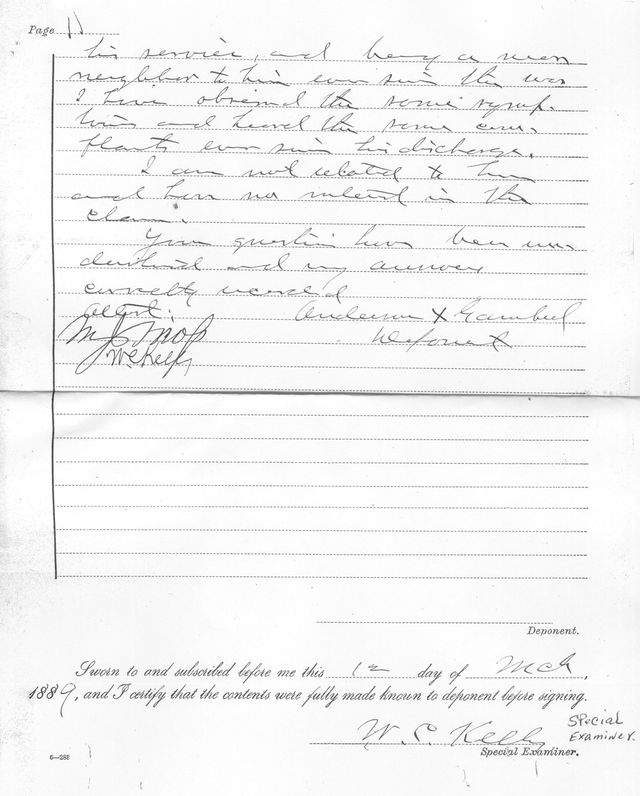 Page 11
his service, and being a near
neighbor to him ever since the war
I have observed the same symp-
toms and heard the same com-
plaints ever since his discharge.
I am not related to him
and have no interest in the
claim.
Your questions have been un-
derstood and my answers
correctly recorded
Attest: Anderson X Gambrel
Deponent
W.C. Kelly
Deponent.
Sworn to and subscribed before me this 12 day of Mch,
1889, and I certify that the contents were fully made known to deponent before signing.
W. C. Kelly Special Examiner.
Special Examiner.
6—288